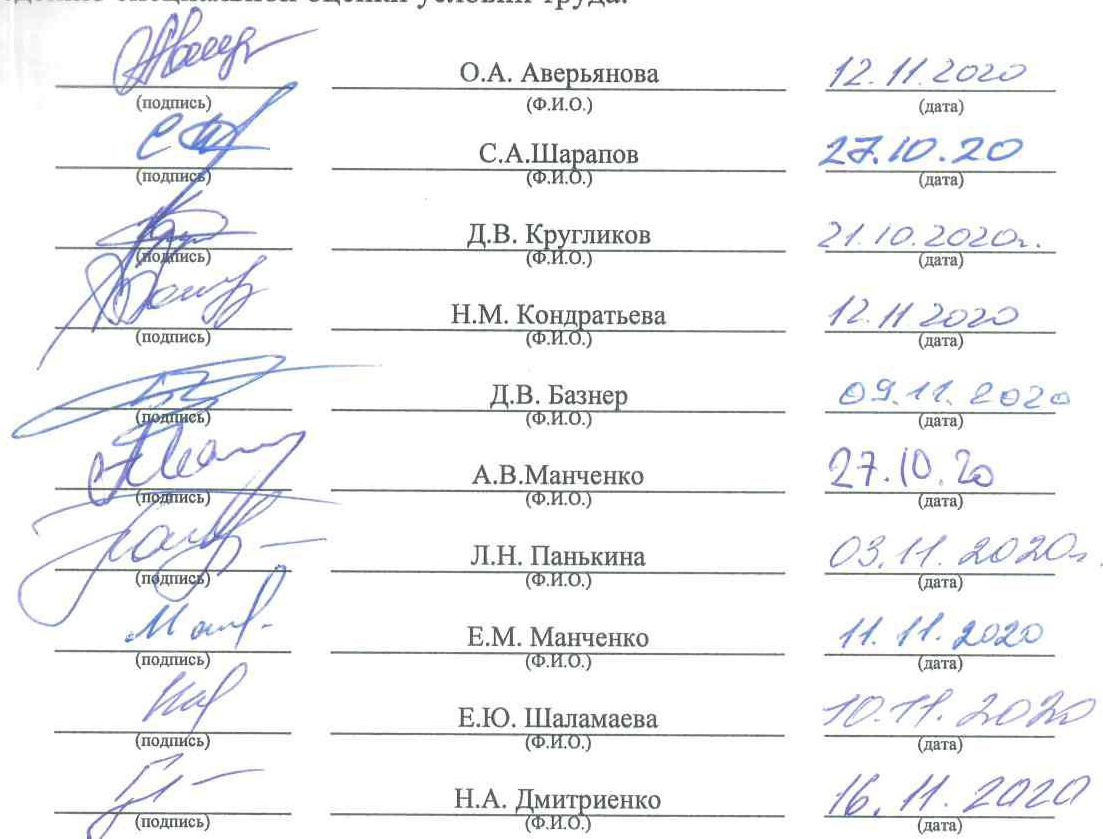 специальной оценки условий труда.
О.А. Аверьянова 12.11.2020
(подпись) (Ф.И.О.) (дата)
С.А.Шарапов 27.10.20
(подпись) (Ф.И.О.) (дата)
Д.В. Кругликов 21.10.2020г.
(подпись) (Ф.И.О.) (дата)
Н.М. Кондратьева 12.11 2020
(подпись) (Ф.И.О.) (дата)
Д.В. Базнер 09.11.2020
(подпись) (Ф.И.О.) (дата)
А.В.Манченко 27.10.20
(подпись) (Ф.И.О.) (дата)
Л.Н. Панькина 03.11.2020г.
(подпись) (Ф.И.О.) (дата)
Е.М. Манченко 11.11.2020
(подпись) (Ф.И.О.) (дата)
Е.Ю. Шаламаева 10.11.2020
(подпись) (Ф.И.О.) (дата)
Н.А. Дмитриенко 16.11.2020
(подпись) (Ф.И.О.) (дата)